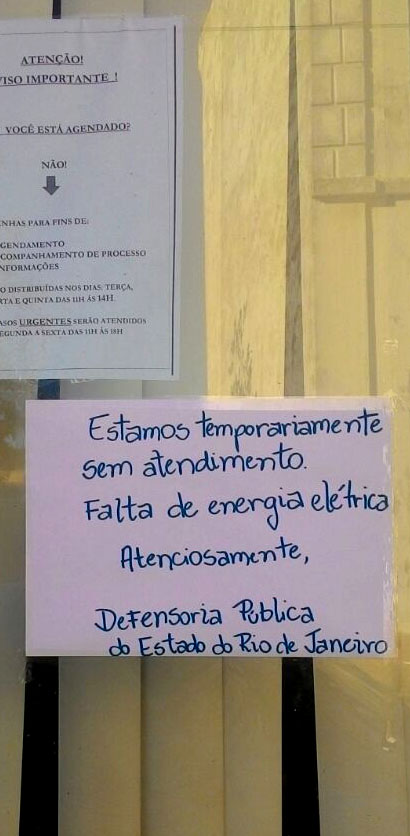 ATENÇÃO!
VISO IMPORTANTE !
VOCÊ ESTÁ AGENDADO?
NÃO!
ENHAS PARA FINS DE:
GENDAMENTO
COMPANHAMENTO DE PROCESSO
NFORMAÇÕES
O DISTRIBUÍDAS NOS DIAS: TERÇA,
RTA E QUINTA DAS 11H ÀS 14H.
ASOS URGENTES SERÃO ATENDIDOS
EGUNDA A SEXTA DAS 11H ÀS 18H
Estamos temporariamente
sem atendimento.
Falta de energia elétrica
Atenciosamente,
Defensoria Pública
do Estado do Rio de Janeiro